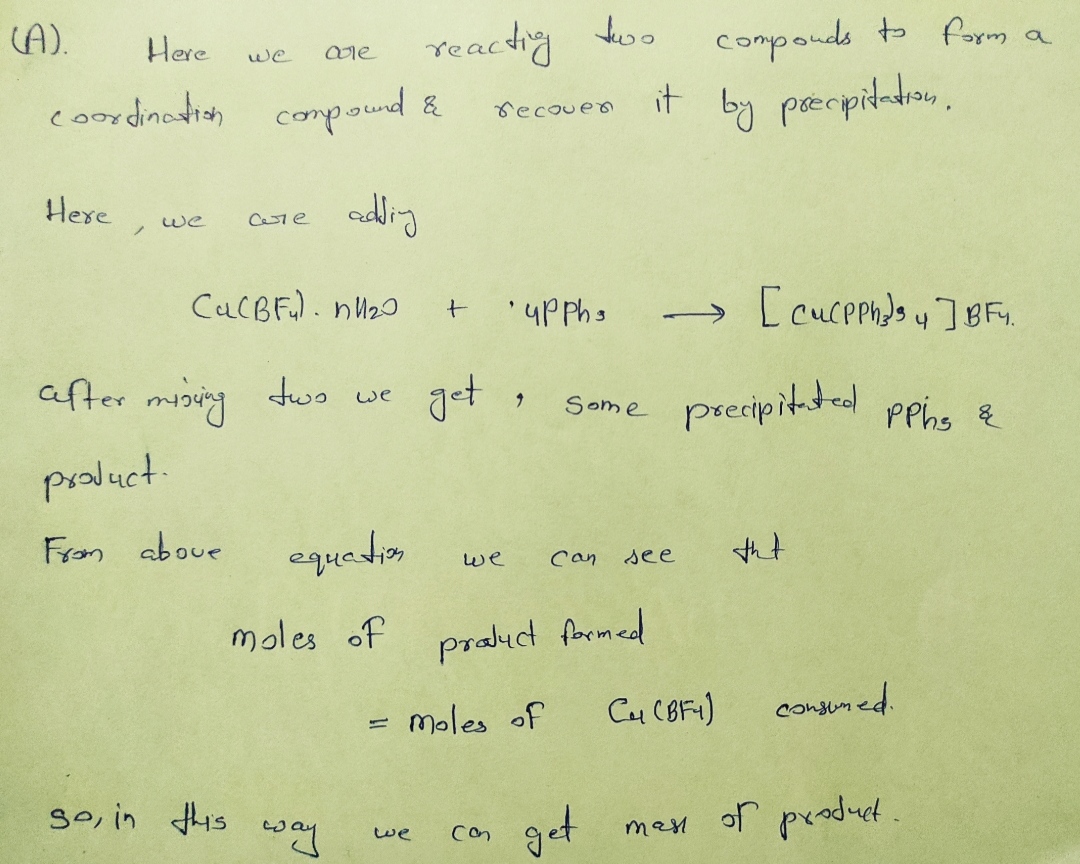 (A). Here we are reactig two compouds to form a
coordination compound & recover it by precipitation.
Here, we are addig
Cu(BF4). nH2O + 4PPh3 → [Cu(PPh3)4]BF4.
after mixing two we get, some precipitated PPh3 &
product.
From above equation we can see tht
moles of product formed
= moles of Cu(BF4) consumed.
so, in this way we can get mass of product.